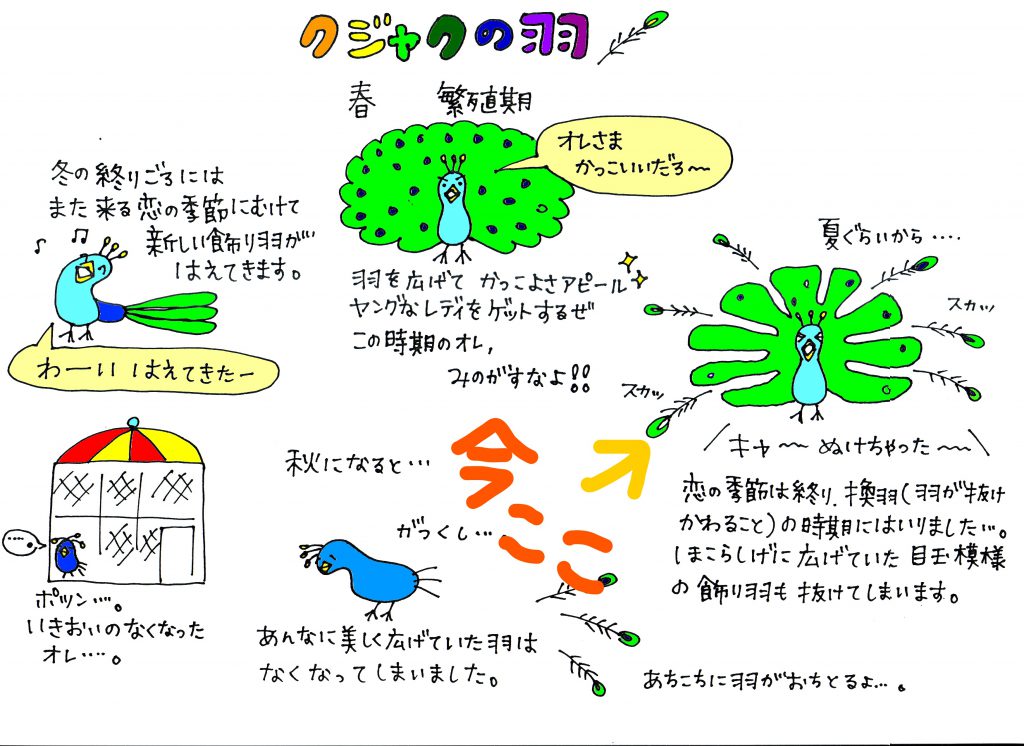 クジャクの羽
春 繁殖期
オレさま
かっこいいだろ〜
羽を広げて かっこよさアピール
ヤングなレディをゲットするぜ
この時期のオレ、
みのがすなよ!!
夏ぐらいから....
スカッ
スカッ
キャ〜〜 ぬけちゃった〜〜
恋の季節は終り、換羽(羽が抜け
かわること)の時期にはいりました…。
ほこらしげに広げていた 目玉模様
の飾り羽も 抜けてしまいます。
今ここ
あちこちに羽がおちとるよ…。
秋になると…
がっくし…．
あんなに美しく広げていた羽は
なくなってしまいました。
ポツン…。
いきおいのなくなった
オレ…。
冬の終りごろには
また来る恋の季節にむけて
新しい飾り羽が
はえてきます。
わーい はえてきたー